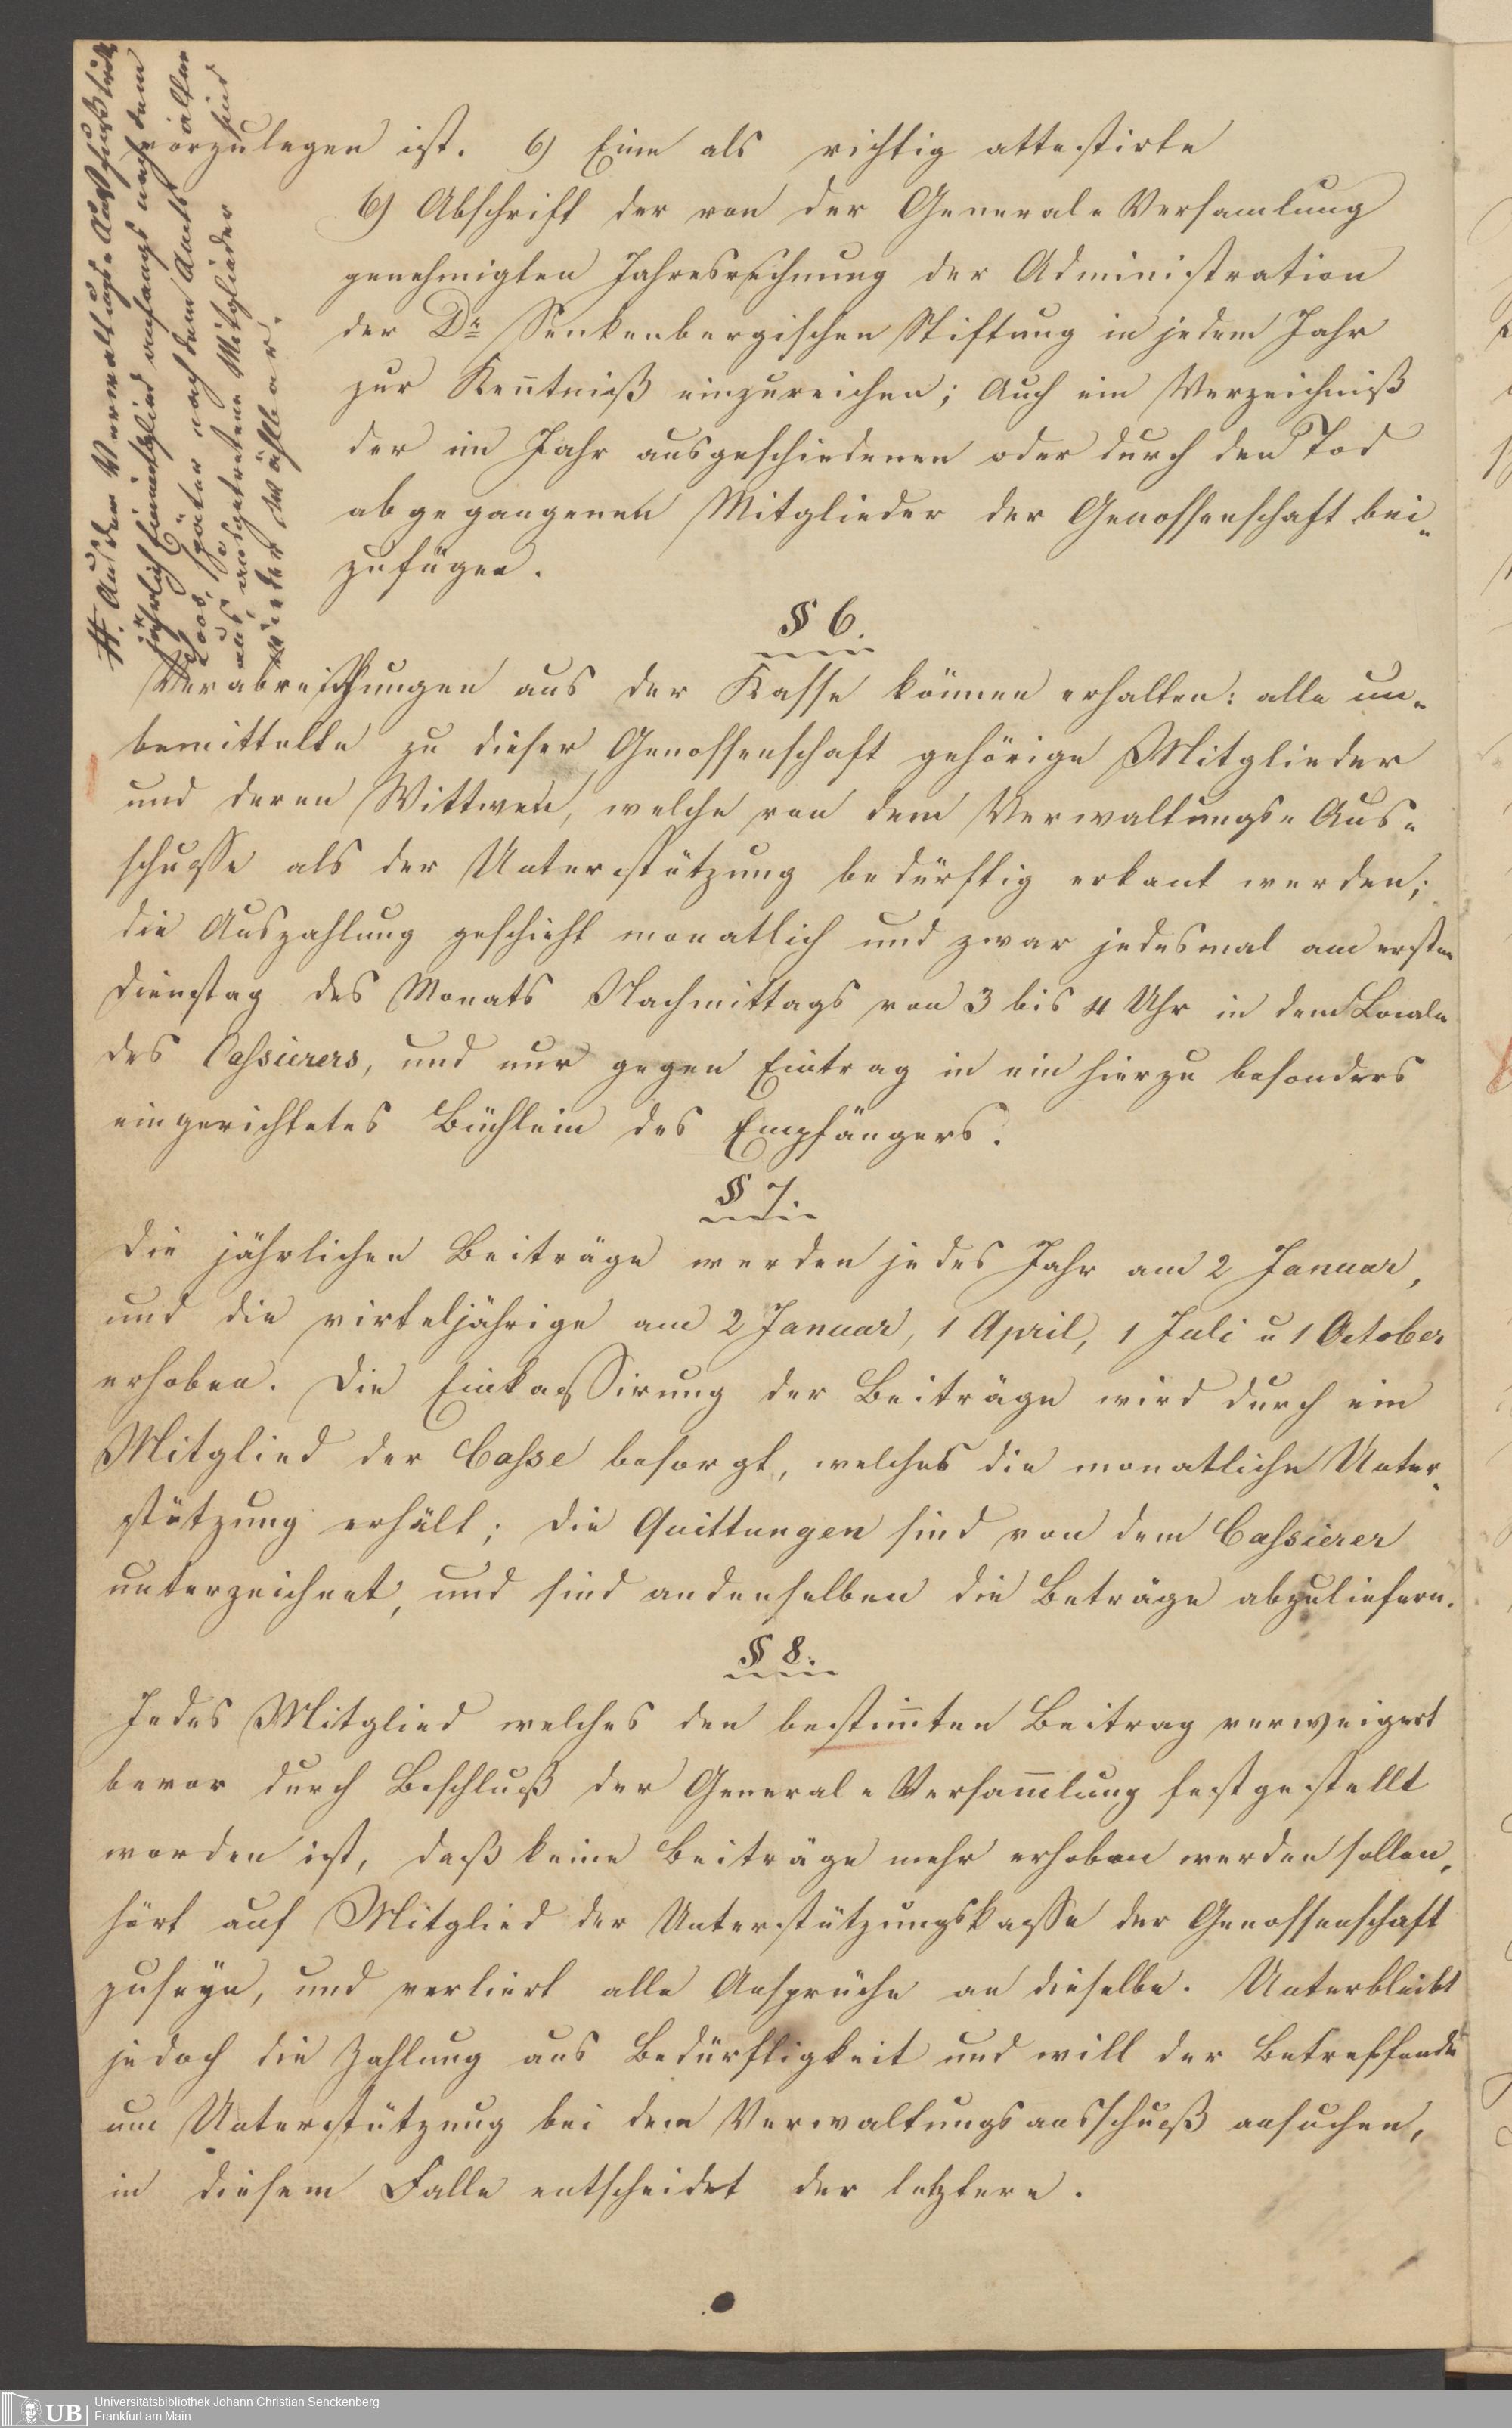 vorzulegen ist. 6) Eine als richtig attestirte
6) Abschrift der von der General-Versamlung
genehmigten Jahresrechnung der Administration
der Dr Senkenbergischen Stiftung in jedem Jahr
zur Kenntniß einzureichen; Auch ein Verzeichniß
der im Jahr ausgeschiedenen oder durch den Tod
abgegangenen Mitglieder der Genossenschaft bei-
zufügen.
#. Aus dem Verwaltungs-Ausschuß tritt
jährlich ein Mitglied anfangs nach dem
Loos, später nach dem Amtsalter
aus, ausgetretene Mitglieder sind
wieder wählbar.
§ 6.
Verabreichungen aus der Kasse können erhalten: alle un-
bemittelte zu dieser Genossenschaft gehörige Mitglieder
und deren Wittwen, welche von dem Verwaltungs-Aus-
schusse als der Unterstützung bedürftig erkant werden;
die Auszahlung geschieht monatlich und zwar jedesmal am ersten
Dienstag des Monats Nachmittags von 3 bis 4 Uhr in dem Locale
des Cassierers, und nur gegen Eintrag in ein hierzu besonders
eingerichtetes Büchlein des Empfängers.
§ 7.
Die jährlichen Beiträge werden jedes Jahr am 2 Januar,
und die virteljährige am 2 Januar, 1 April, 1 Juli u 1 October
erhoben. Die Einkassirung der Beiträge wird durch ein
Mitglied der Casse besorgt, welches die monatliche Unter-
stützung erhält; die Quittungen sind von dem Cassierer
unterzeichnet, und sind andenselben die Beträge abzuliefern.
§ 8.
Jedes Mitglied welches den bestim̅ten Beitrag verweigert
bevor durch Beschluß der General-Versam̅lung festgestellt
worden ist, daß keine Beiträge mehr erhoben werden sollen,
hört auf Mitglied der Unterstützungskasse der Genossenschaft
zuseyn, und verliert alle Ansprüche an dieselbe. Unterbleibt
jedoch die Zahlung aus Bedürftigkeit und will der Betreffende
um Unterstützung bei dem Verwaltungsausschuß ansuchen,
in diesem Falle entscheidet der letztere.
UB
Universitätsbibliothek Johann Christian Senckenberg
Frankfurt am Main